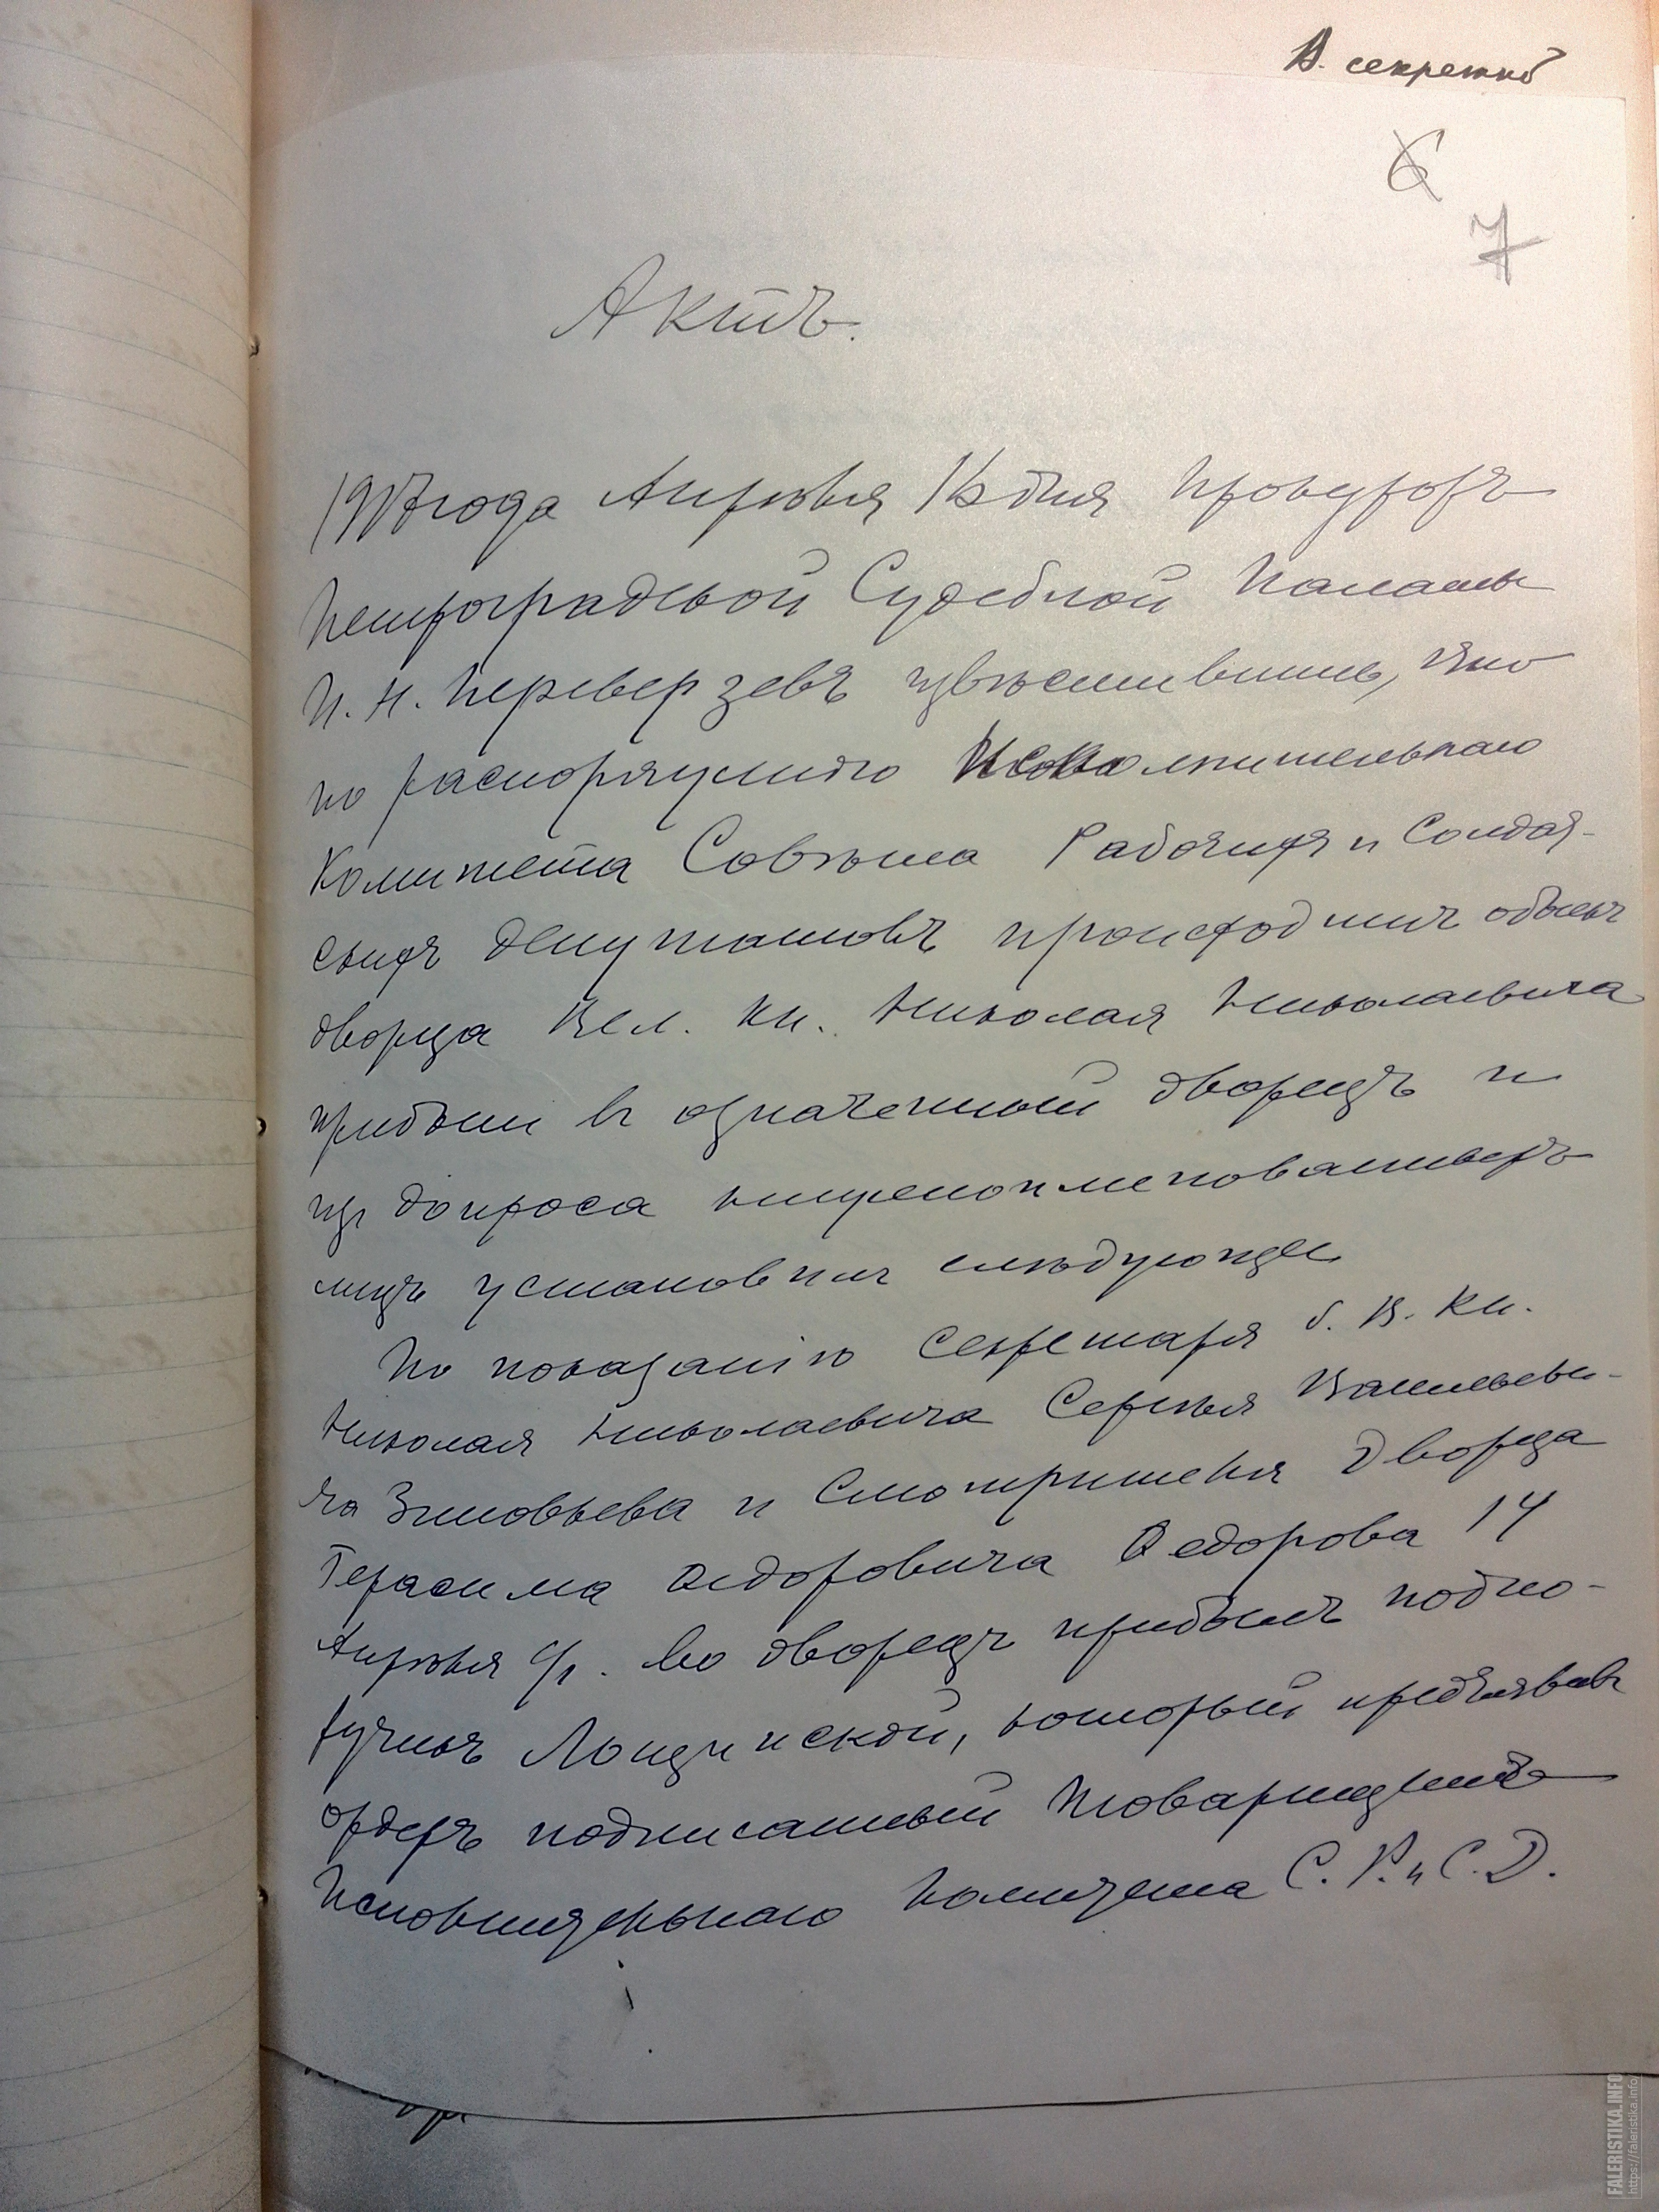 В. секретно
6
7
Актъ.
1917 года Апрѣля 15 дня Прокуроръ
Петроградской Судебной Палаты
П. Н. Переверзевъ извѣстившись, что
по распоряженію Исполнительнаго
Комитета Совѣта Рабочихъ и Солдат-
скихъ Депутатовъ происходитъ обыскъ
дворца Вел. Кн. Николая Николаевича
прибылъ въ означенный дворецъ и
изъ допроса нижепоименованныхъ
лицъ установилъ слѣдующее
По показанію Секретаря б. В. Кн.
Николая Николаевича Сергѣя Васильеви-
ча Зиновьева и Смотрителя Дворца
Герасима Ѳедоровича Ѳедорова 14
Апрѣля с/г. во дворецъ прибылъ подпо-
ручикъ Лощинской, который предъявивъ
ордеръ подписанный товарищемъ
Исполнительнаго Комитета С. Р. и С. Д.
FALERISTIKA.INFO
https://faleristika.info/